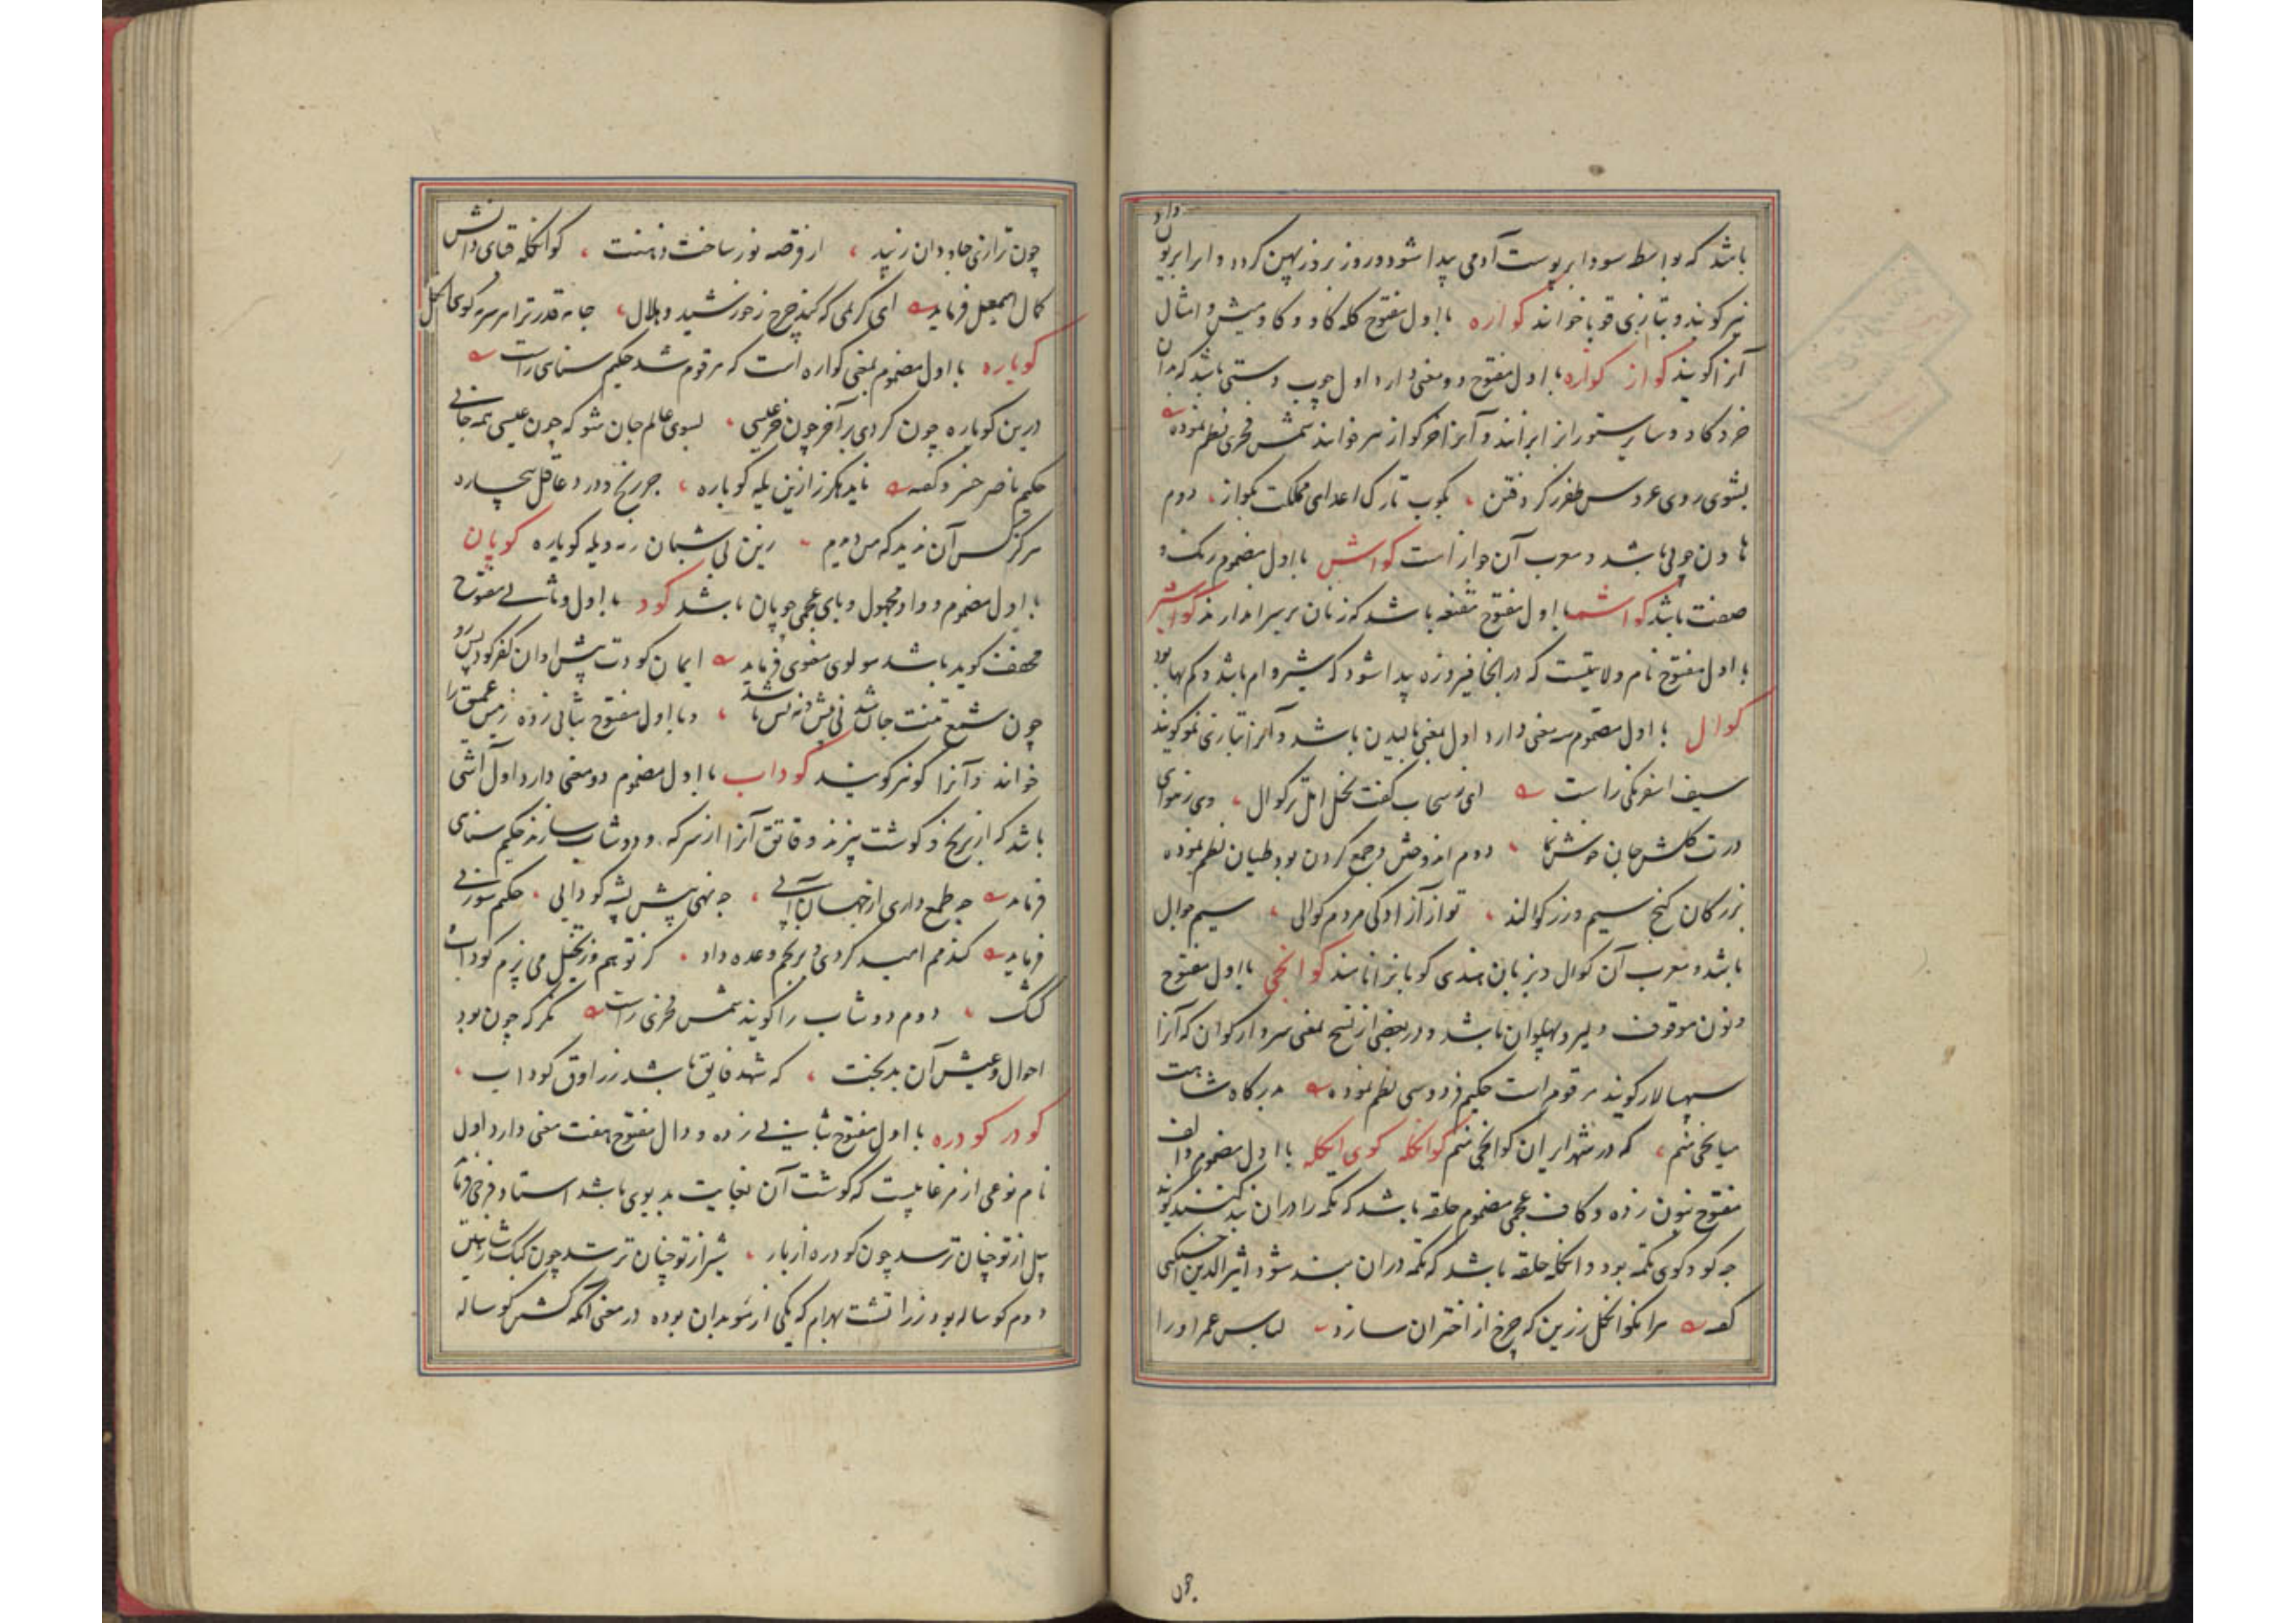 باشد که بواسطه سودا بر پوست آدمی پیدا شود و روز بروز پهن گردد و انرا بریون
نیز گویند و بتازی قوبا خوانند کواره با اول مفتوح کله کاو و کاومیش و امثال
آنرا گویند کواز کوازه با اول مفتوح دو معنی دارد اول چوب دستی باشد که بدان
خر و کاو و سایر ستور انرا برانند و آنرا خرکواز نیز خوانند شمس فخری نظم نموده
بشوی روی عروس ظفر ز کرد فتن ، بکوب تارک اعدای مملکت بکواز ، دوم
هاون چوبی باشد و معرب آن جواز است کواش با اول مضموم رنک و
صفت باشد کواشمه با اول مفتوح مقنعه باشد که زنان بر سر اندازند کواشیر
با اول مفتوح نام ولایتیست که در انجا فیروزه پیدا شود که شیروام باشد و کم بها بود
کوال با اول مضموم سه معنی دارد اول بمعنی بالیدن باشد و آنرا بتازی نمو گویند
سیف اسفرنکی راست ای ز سحاب کفت نخل امل تر کوال ، وی ز هوای
درت کلشن جان خوش نما ، دوم اندوختن و جمع کردن بود طیان نظم نموده
بزرکان کنج سیم و زر کوالند ، تو از آزادکی مردم کوالی ، سیم جوال
باشد و معرب آن کوال و بزبان هندی کوبا نرا نامند کوانجی با اول مفتوح
و نون موقوف دلیر و پهلوان باشد و در بعضی از نسخ بمعنی سردار کوان که آنرا
سپهسالار گویند مرقوم است حکیم فردوسی نظم نموده بدرکاه شاهت
میانجی منم ، که در شهر ایران کوانجی منم کوانکله کوی انکله با اول مضموم و الف
مفتوح بنون زده و کاف عجمی مضموم حلقه باشد که تکمه را در ان بند کنند گویند
چه کو و کوی تکمه بود و انکله حلقه باشد که تکمه در ان بند شود اثیرالدین اخسیکتی
کفته مر انکوانکل زرین که چرخ از اختران سازد لباس عمر او را
چون
چون ترازی جاودان زیبد ، از قرصه نور ساخت ذهنت ، کوانکله قبای دانش
کمال اسمعیل فرماید ای کریمی که کند چرخ ز خورشید و هلال ، جامه قدر ترا بر سر هر کوی انکل
کوباره با اول مضموم بمعنی کواره است که مرقوم شد حکیم سنایی راست
درین کوباره چون کردی بر آخر چون خر عیسی ، بسوی عالم جان شو که چون عیسی همه جانی
حکیم ناصر خسرو کفته ناید هرکز ازین یله کوباره ، جز رنج و درد عاقل بیچاره
هرکز کس آن ندید که من دیدم ، زین بی شبان رمه و یله کوباره کوپان
با اول مضموم و واو مجهول و بای عجمی چوپان باشد کود با اول و ثانی مفتوح
مخفف گوید باشد مولوی معنوی فرماید ایمان کودت پیش ا و ان کفر کود پس رو
چون شمع تنت جان شد نی پیش و نه پس باشد ، و با اول مفتوح بثانی زده زمین عمیق را
خوانند و آنرا کو نیز گویند کوداب با اول مضموم دو معنی دارد اول آشی
باشد که از برنج و گوشت پزند و قاتق آنرا از سرکه و دوشاب سازند حکیم سنایی
فرماید چه طمع داری از جهان آبی ، چه نهی پیش پشه کودابی ، حکیم سوزنی
فرماید کندمم امید کردی و برنجم وعده داد ، کر تو هم وزنجبیل می پزم کوداب
کنک ، دوم دوشاب را گویند شمس فخری راست نکر که چون بود
احوال و عیش آن بدبخت ، که شهد فایق باشد ز راوق کوداب ،
کودر کودره با اول مفتوح بثانی زده و دال مفتوح هفت معنی دارد اول
نام نوعی از مرغابیست که گوشت آن بغایت بدبوی باشد استاد فرخی فرماید
پیل از تو چنان ترسد چون کودره از باز ، شیر از تو چنان ترسد چون کبک ز شاهین
دوم کوساله بود زراتشت بهرام که یکی از موبدان بوده در معنی آنکه کشش کوساله